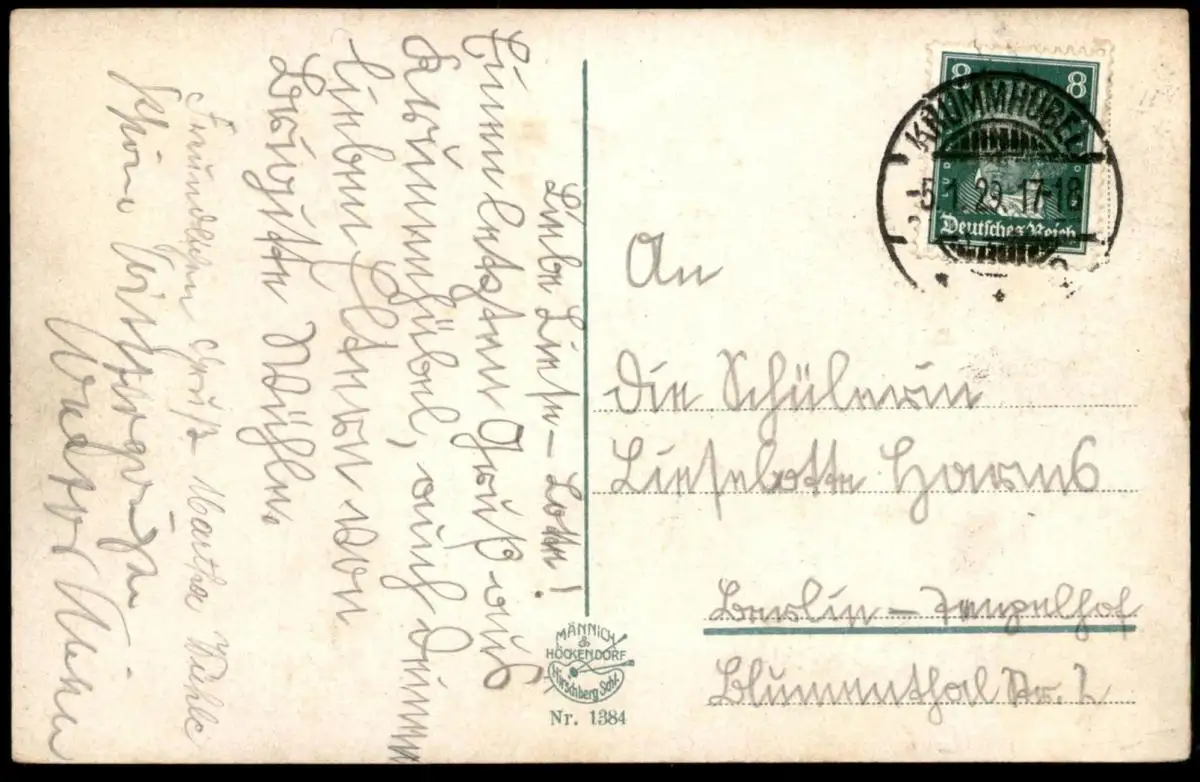 Liebe Liese-Lotte!
Einen herzlichen Gruß aus
Krummhübel, auch deinen
lieben Eltern von
Brigitte Mühle.
Freundlichen Gruß Martha Mühle
Schöne Wintergrüße
8 8
KRUMMHÜBEL
5.1.29.17-18
Deutsches Reich
An
Die Schülerin
Lieselotte Harms
Berlin – Tempelhof
Blumenthal Str. 2
MÄNNICH
&
HÖCKENDORF
Hirschberg Schl.
Nr. 1384